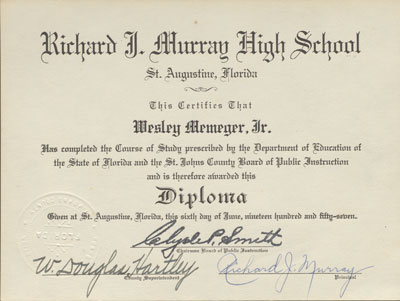 Richard J. Murray High School
St. Augustine, Florida
This Certifies That
Wesley Memeger, Jr.
Has completed the Course of Study prescribed by the Department of Education of
the State of Florida and the St. Johns County Board of Public Instruction
and is therefore awarded this
Diploma
Given at St. Augustine, Florida, this sixth day of June, nineteen hundred and fifty-seven.
Clyde P. Smith
Chairman Board of Public Instruction
W. Douglas Hartley
County Superintendent
Richard J. Murray
Principal